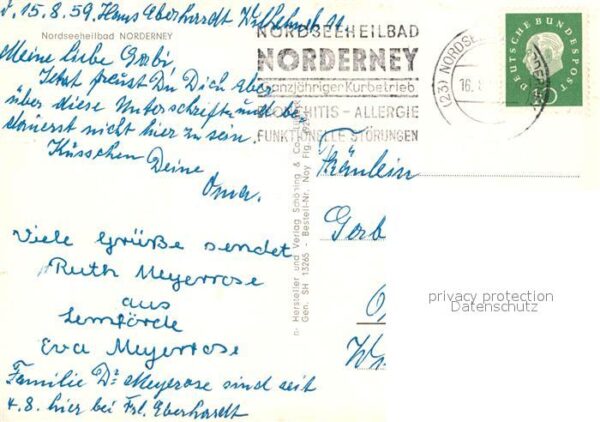 d. 15.8.59. Hans Eberhardt Wilhelmstr.
Nordseeheilbad NORDERNEY
Meine liebe Gabi,
Jetzt freust Du Dich aber
über diese Unterschrift und be
dauerst nicht hier zu sein
Küsschen Deine
Oma.
Viele Grüße sendet
Ruth Meyerrose
aus
Lemförde
Eva Meyerrose
Familie Dr Meyerose sind seit
4.8. hier bei Frl. Eberhardt
NORDSEEHEILBAD
NORDERNEY
ganzjähriger Kurbetrieb
BRONCHITIS - ALLERGIE
FUNKTIONELLE STÖRUNGEN
(23) NORDSEE
16.8
DEUTSCHE BUNDESPOST
10
Hersteller und Verlag Schöning & Co
Gen. SH 13265 - Bestell-Nr. Noy Flg.
Fräulein
Gab
privacy protection
Datenschutz